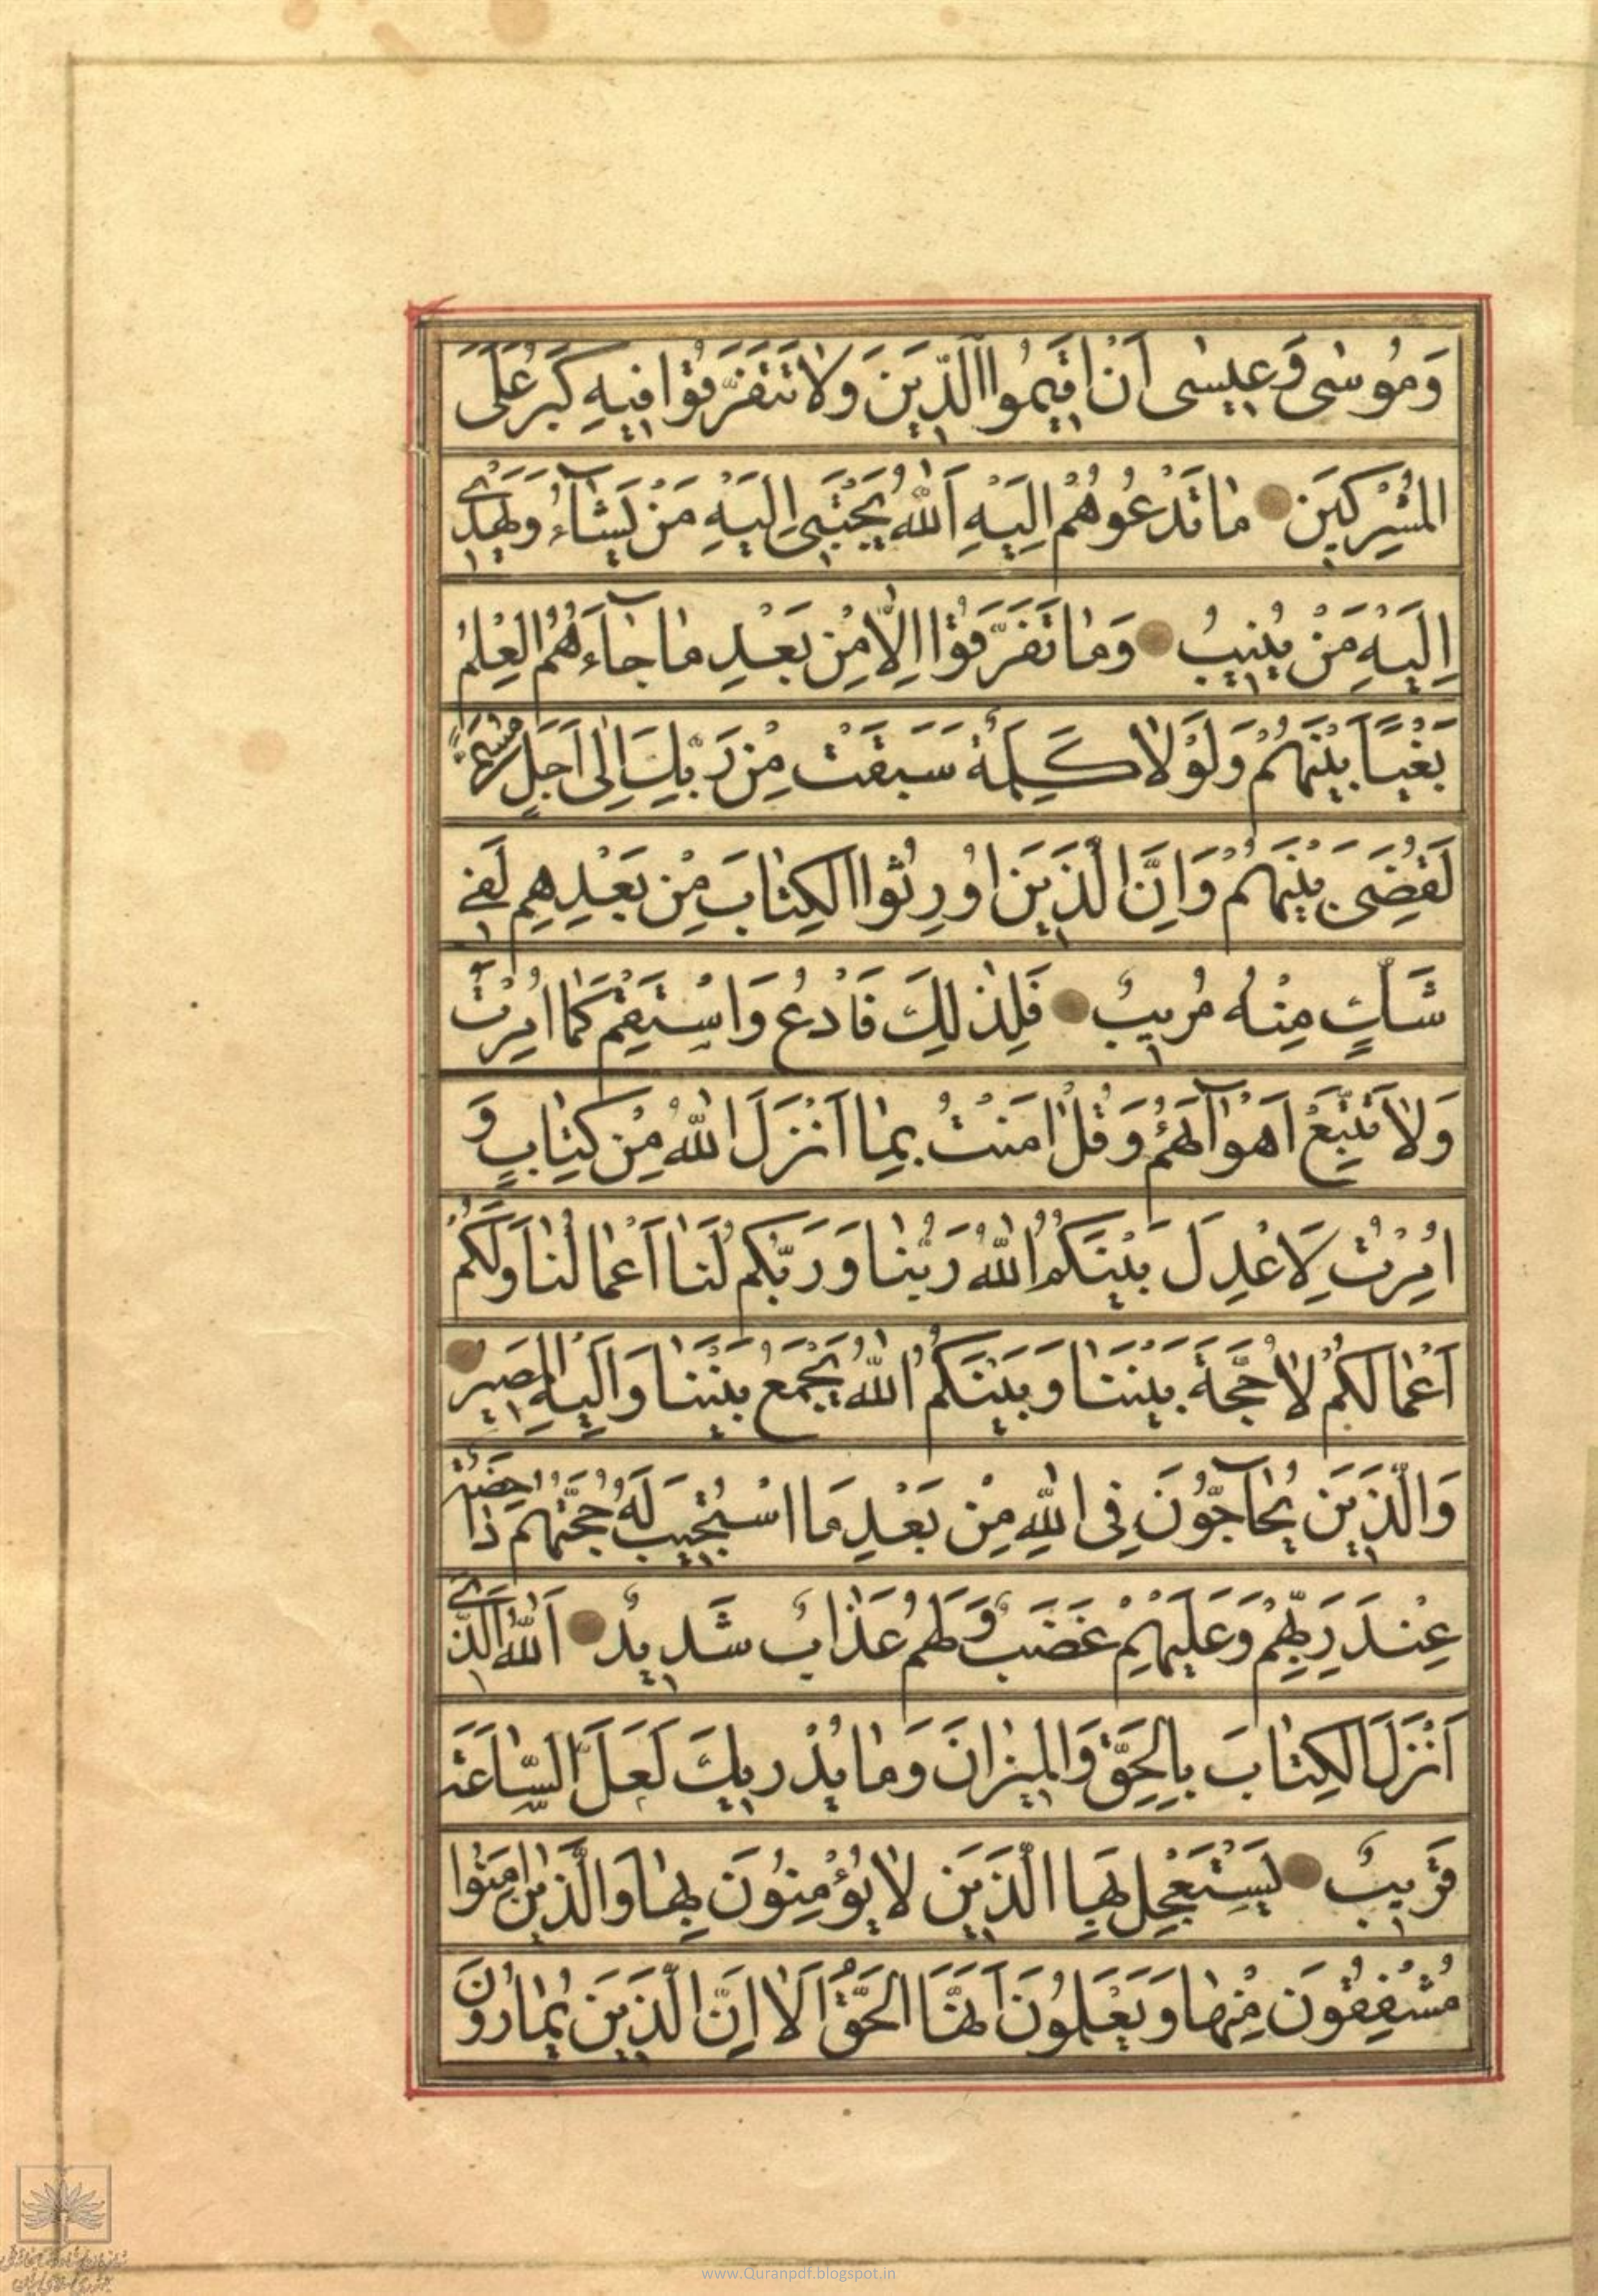 وَمُوسٰى وَعِيسٰى اَنْ اَقِيمُوا الدِّينَ وَلَا تَتَفَرَّقُوا فِيهِ كَبُرَ عَلَى
الْمُشْرِكِينَ مَا تَدْعُوهُمْ اِلَيْهِ اَللّٰهُ يَجْتَبِى اِلَيْهِ مَنْ يَشَآءُ وَيَهْدِى
اِلَيْهِ مَنْ يُنِيبُ وَمَا تَفَرَّقُوا اِلَّا مِنْ بَعْدِ مَا جَآءَهُمُ الْعِلْمُ
بَغْيًا بَيْنَهُمْ وَلَوْلَا كَلِمَةٌ سَبَقَتْ مِنْ رَبِّكَ اِلٰى اَجَلٍ مُسَمًّى
لَقُضِىَ بَيْنَهُمْ وَاِنَّ الَّذِينَ اُورِثُوا الْكِتَابَ مِنْ بَعْدِهِمْ لَفِى
شَكٍّ مِنْهُ مُرِيبٌ فَلِذٰلِكَ فَادْعُ وَاسْتَقِمْ كَمَا اُمِرْتَ
وَلَا تَتَّبِعْ اَهْوَآءَهُمْ وَقُلْ اٰمَنْتُ بِمَا اَنْزَلَ اللّٰهُ مِنْ كِتَابٍ وَ
اُمِرْتُ لِاَعْدِلَ بَيْنَكُمُ اللّٰهُ رَبُّنَا وَرَبُّكُمْ لَنَا اَعْمَالُنَا وَلَكُمْ
اَعْمَالُكُمْ لَا حُجَّةَ بَيْنَنَا وَبَيْنَكُمُ اللّٰهُ يَجْمَعُ بَيْنَنَا وَاِلَيْهِ الْمَصِيرُ
وَالَّذِينَ يُحَآجُّونَ فِى اللّٰهِ مِنْ بَعْدِ مَا اسْتُجِيبَ لَهُ حُجَّتُهُمْ دَاحِضَةٌ
عِنْدَ رَبِّهِمْ وَعَلَيْهِمْ غَضَبٌ وَلَهُمْ عَذَابٌ شَدِيدٌ اَللّٰهُ الَّذِى
اَنْزَلَ الْكِتَابَ بِالْحَقِّ وَالْمِيزَانَ وَمَا يُدْرِيكَ لَعَلَّ السَّاعَةَ
قَرِيبٌ يَسْتَعْجِلُ بِهَا الَّذِينَ لَا يُؤْمِنُونَ بِهَا وَالَّذِينَ اٰمَنُوا
مُشْفِقُونَ مِنْهَا وَيَعْلَمُونَ اَنَّهَا الْحَقُّ اَلَا اِنَّ الَّذِينَ يُمَارُونَ
www.Quranpdf.blogspot.in